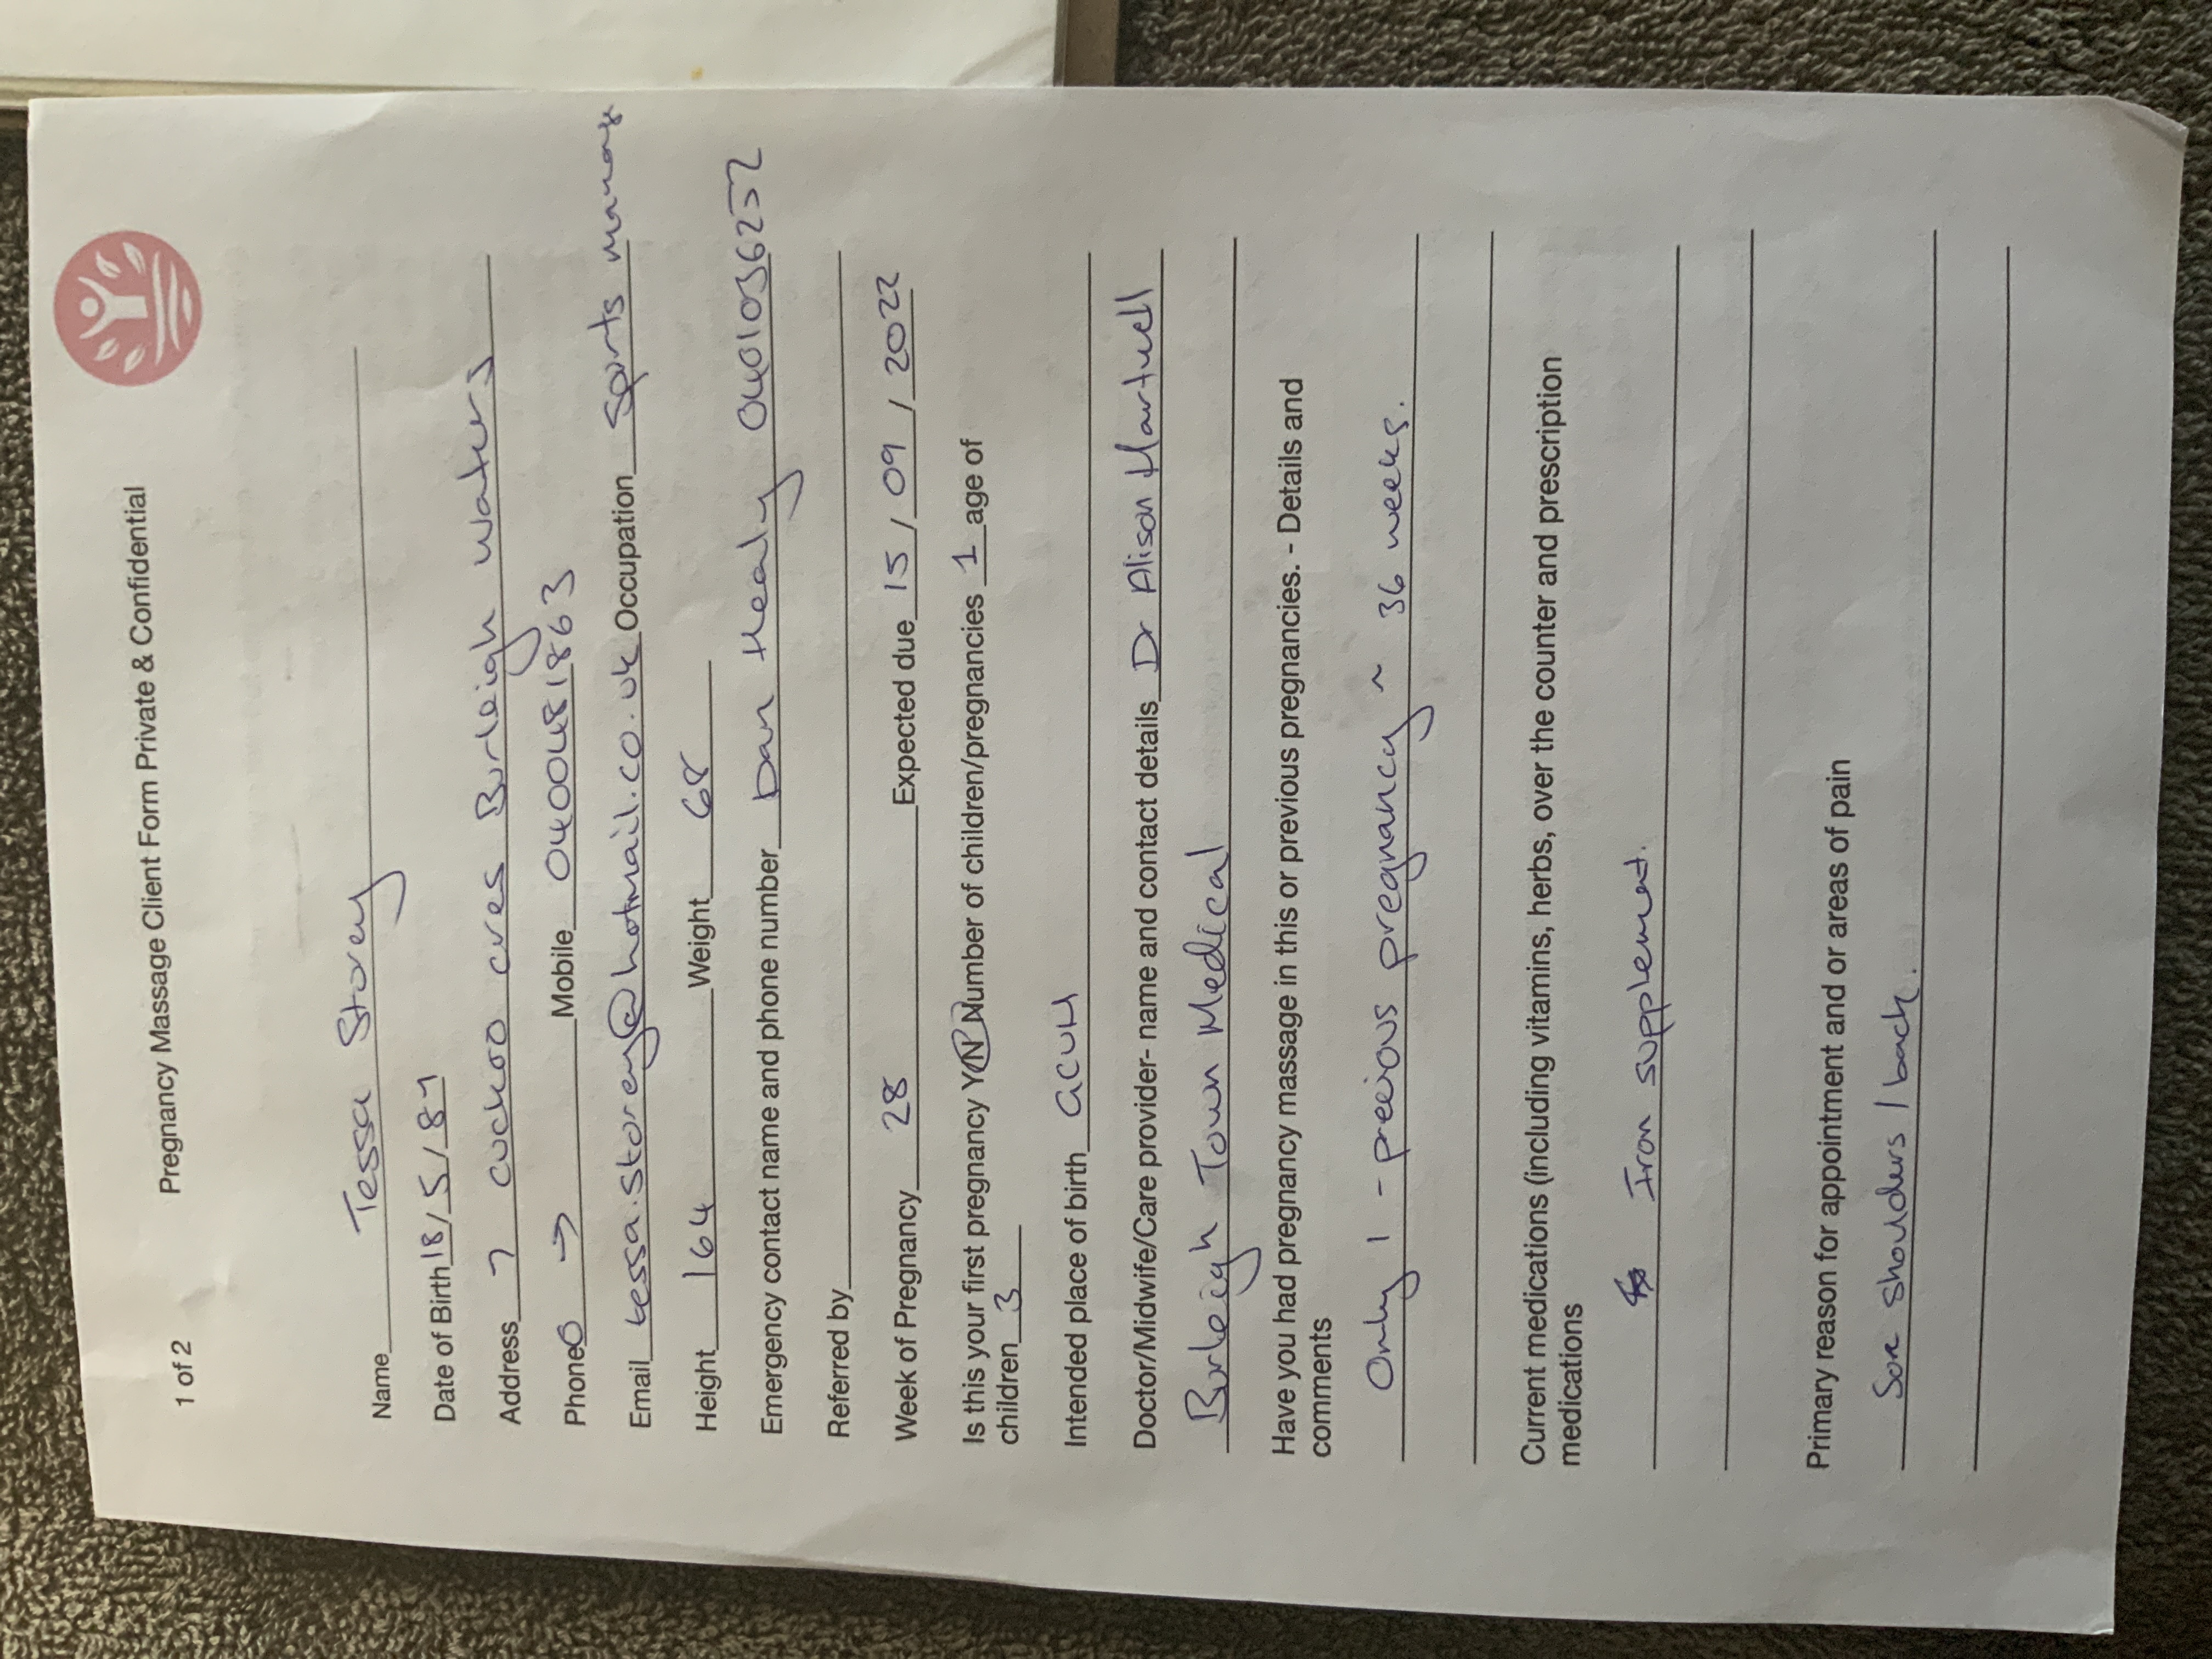 1 of 2 Pregnancy Massage Client Form Private & Confidential
Name Tessa Storey
Date of Birth 18/5/87
Address 7 cuckoo cres Burleigh waters
Phone → Mobile 0400481863
Email tessa.storey@hotmail.co.uk Occupation sports manag
Height 164 Weight 68
Emergency contact name and phone number Dan Healy
Referred by
Week of Pregnancy 28 Expected due 15 / 09 / 2022
Is this your first pregnancy Y/N Number of children/pregnancies 1 age of
children 3
Intended place of birth GCUH
Doctor/Midwife/Care provider- name and contact details Dr Alison Hartwell
Burleigh Town Medical
Have you had pregnancy massage in this or previous pregnancies. - Details and
comments
Only 1 - preeious pregnancy ~ 36 weeks.
Current medications (including vitamins, herbs, over the counter and prescription
medications
Iron supplement.
Primary reason for appointment and or areas of pain
Sore shoulders / back.